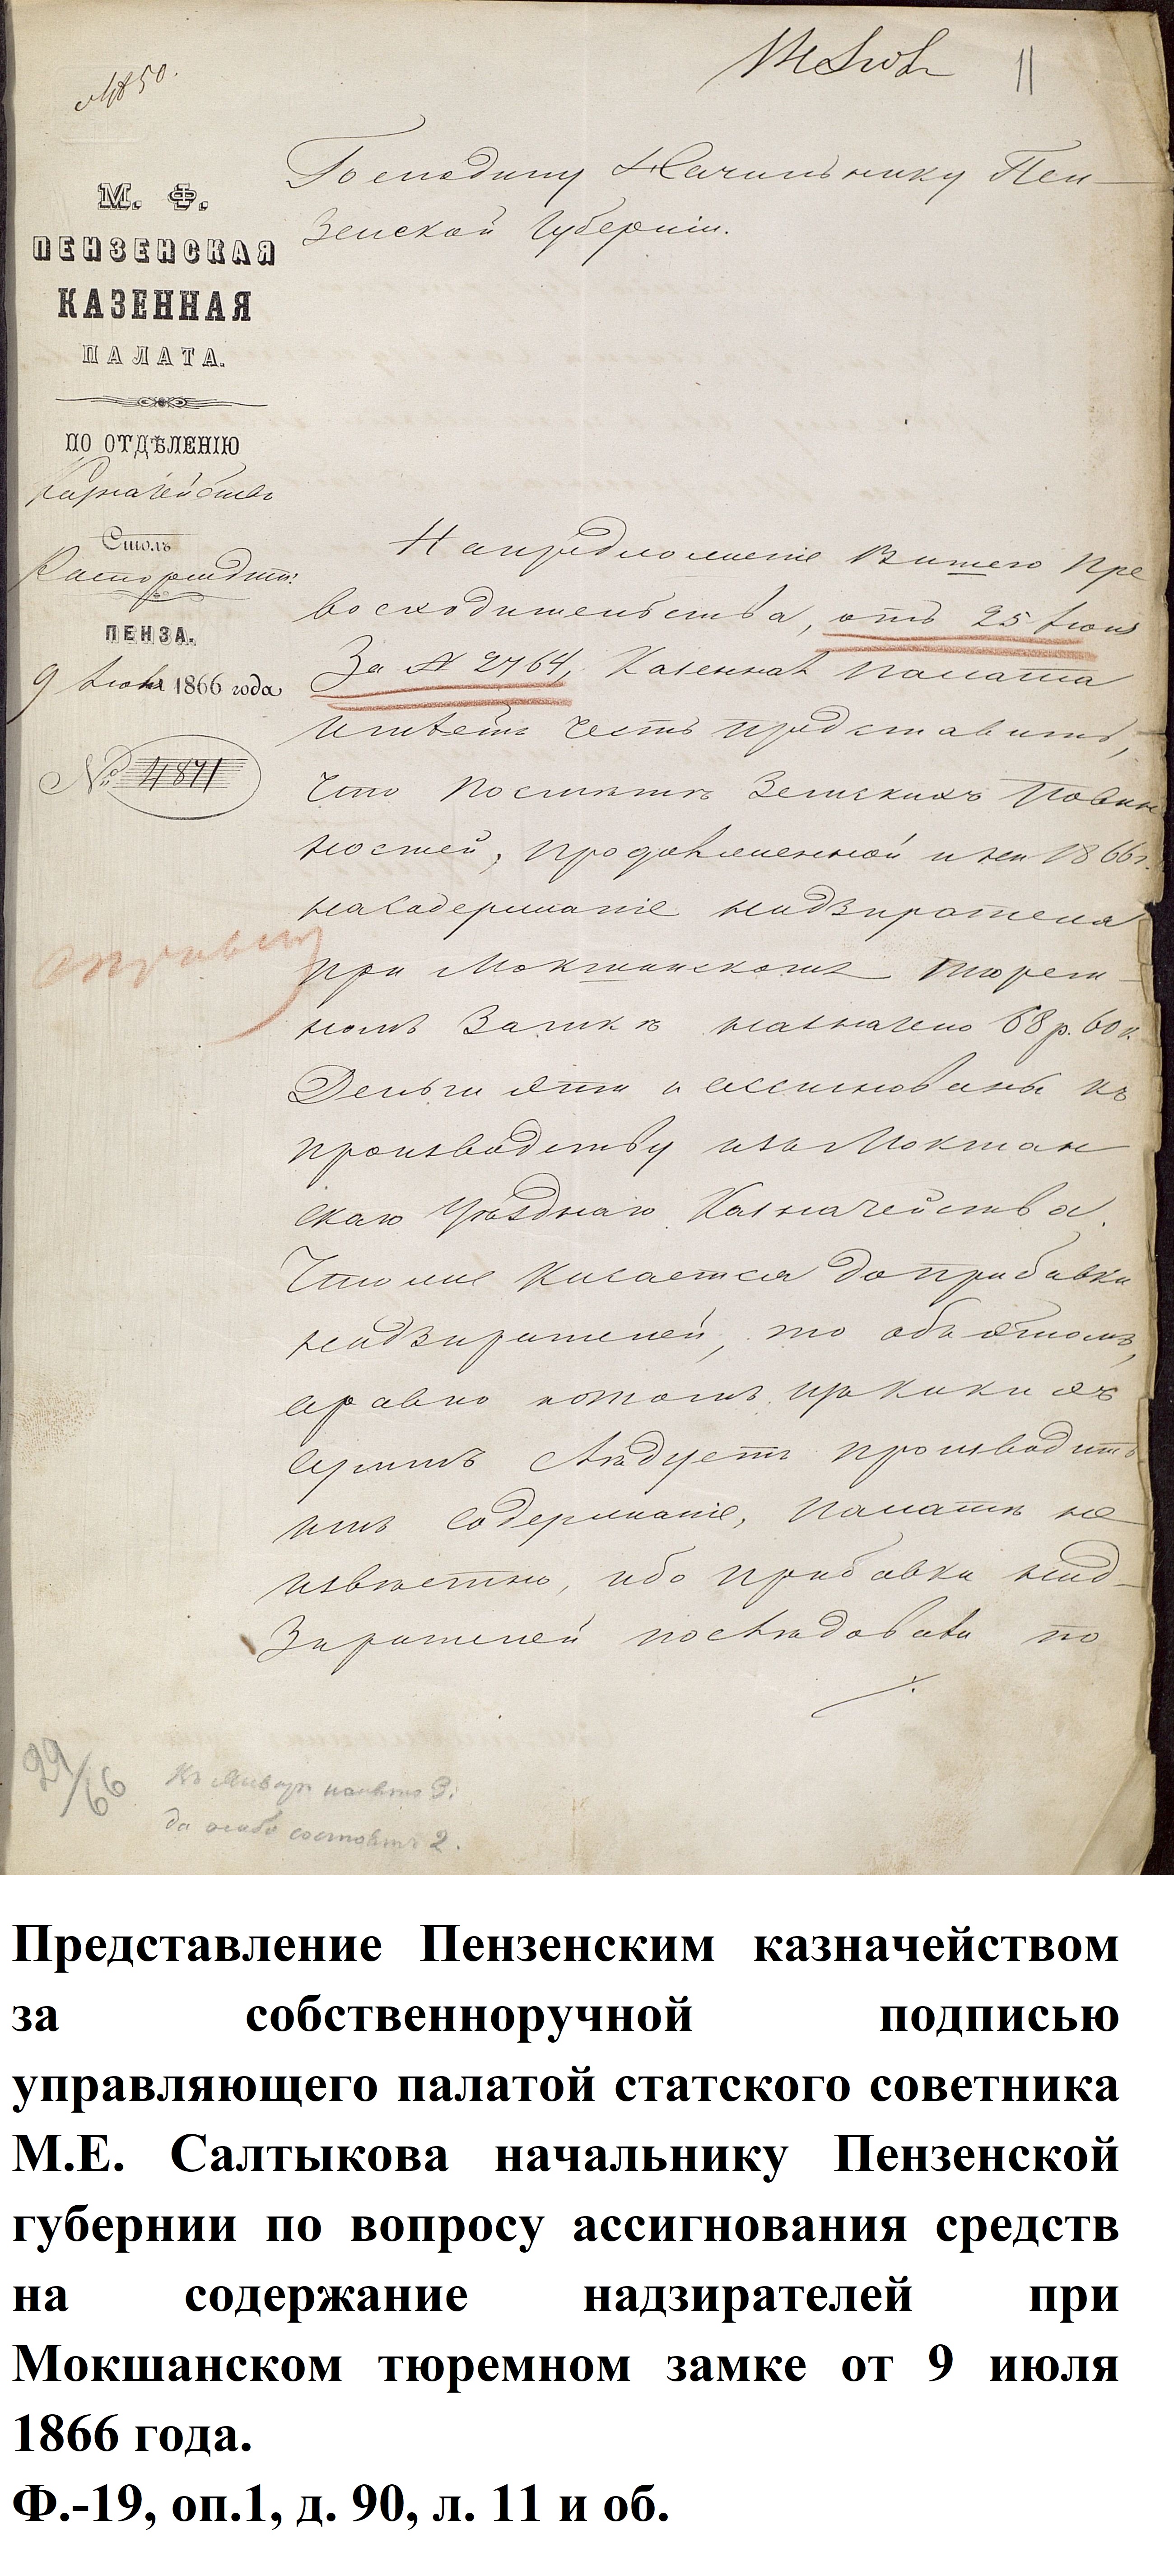 11
М. Ф.
ПЕНЗЕНСКАЯ
КАЗЕННАЯ
ПАЛАТА.
ПО ОТДѢЛЕНІЮ
Казначействъ
Столъ
ПЕНЗА.
9 Іюля 1866 года
№ 4871
Господину Начальнику Пен-
зенской Губерніи.
На предложеніе Вашего Пре
восходительства, отъ 25 Іюня
За № 2764, Казенная Палата
имѣетъ честь представить,
что по смѣтѣ Земскихъ Повин
ностей, продолженной и на 1866 г.
на содержаніе надзирателя
при Мокшанскомъ тюрем-
номъ Замкѣ назначено 68 р. 60 к.
Деньги эти и ассигнованы къ
производству изъ Мокшан
скаго Уѣзднаго Казначейства.
Что же касается до прибавки
надзирателей, то объ этомъ,
а равно и томъ, изъ какихъ
суммъ слѣдуетъ производить
имъ содержаніе, Палатѣ не
извѣстно, ибо прибавка над-
зирателей послѣдовала по
справку
99/66
да особо состоитъ 2.
Представление Пензенским казначейством
за собственноручной подписью
управляющего палатой статского советника
М.Е. Салтыкова начальнику Пензенской
губернии по вопросу ассигнования средств
на содержание надзирателей при
Мокшанском тюремном замке от 9 июля
1866 года.
Ф.-19, оп.1, д. 90, л. 11 и об.